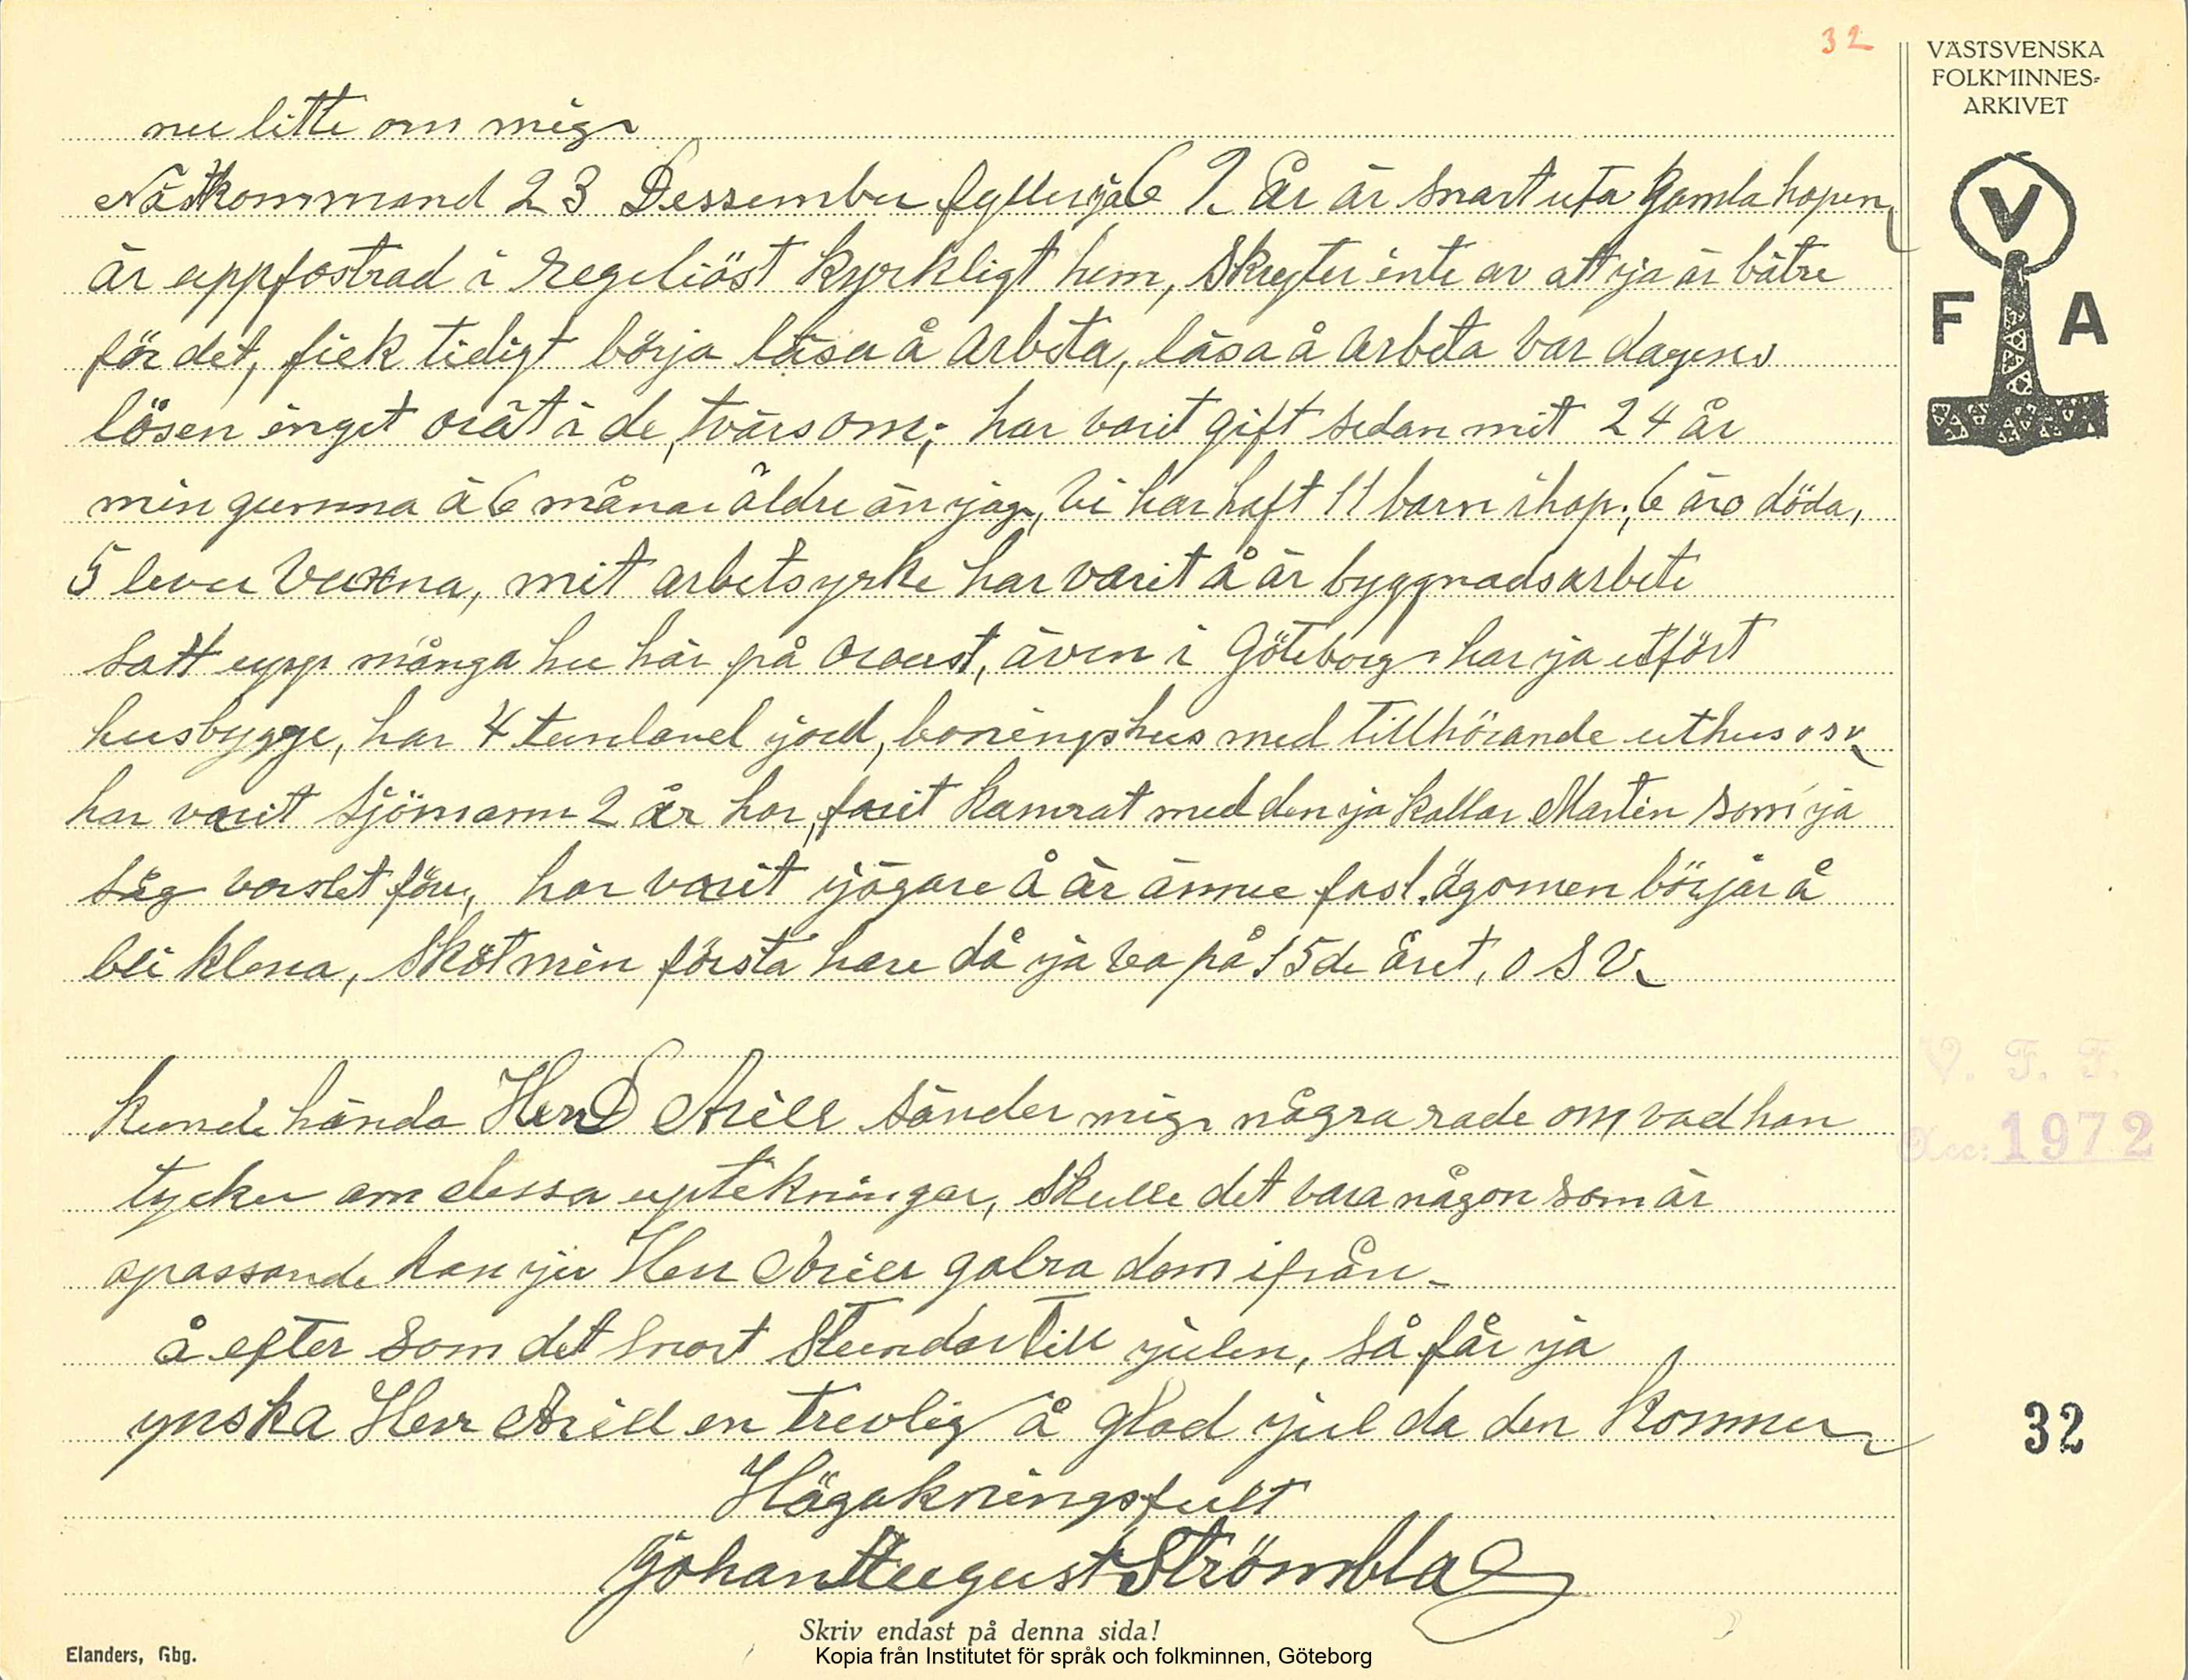 32
VÄSTSVENSKA
FOLKMINNES-
ARKIVET
V
F A
nu litte om mig
Nästkommand 23 Dessember fyller ja 6 2 År är snart uta gamla hopen
är uppfostrad i regeliöst kyrkligt hem, skryter inte av att ja är bätre
för det, fick tidigt börja läsa å arbeta, läsa å arbeta var dagens
lösen inget orät i de, tvärsom; har varit gift sedan mit 24 år
min gumma ä 6 månar äldre än jag, Vi har haft 11 barn ihop; 6 äro döda,
5 lever Vuxna, mit arbetsyrke har varit å är byggnadsarbete
satt upp många hu här på Oroust, även i Göteborg har ja utfört
husbygge, har 4 tunlanel jord, boningshus med tillhörande uthus osv
har varit Sjömann 2 år har, farit kamrat med den ja kallar Martin som ja
såg varslet före, har varit jägare å är ännu fast ögomen börjar å
bli klena, Sköt min första hare då ja va på 15de året, O S V
kunde hända Herr D Arill sänder mig några rade om vad han
tycker om dessa uptekningar, skulle det vara någon som är
opassande kan ju Herr Arill galra dom ifrån
å efter som det snart stundar till julen, så får ja
ynska Herr Arill en trevlig å glad jul da den kommer
Högakningsfult
Johan August Strömblad
V. F. F.
Acc: 1972
32
Skriv endast på denna sida!
Elanders, Gbg.
Kopia från Institutet för språk och folkminnen, Göteborg